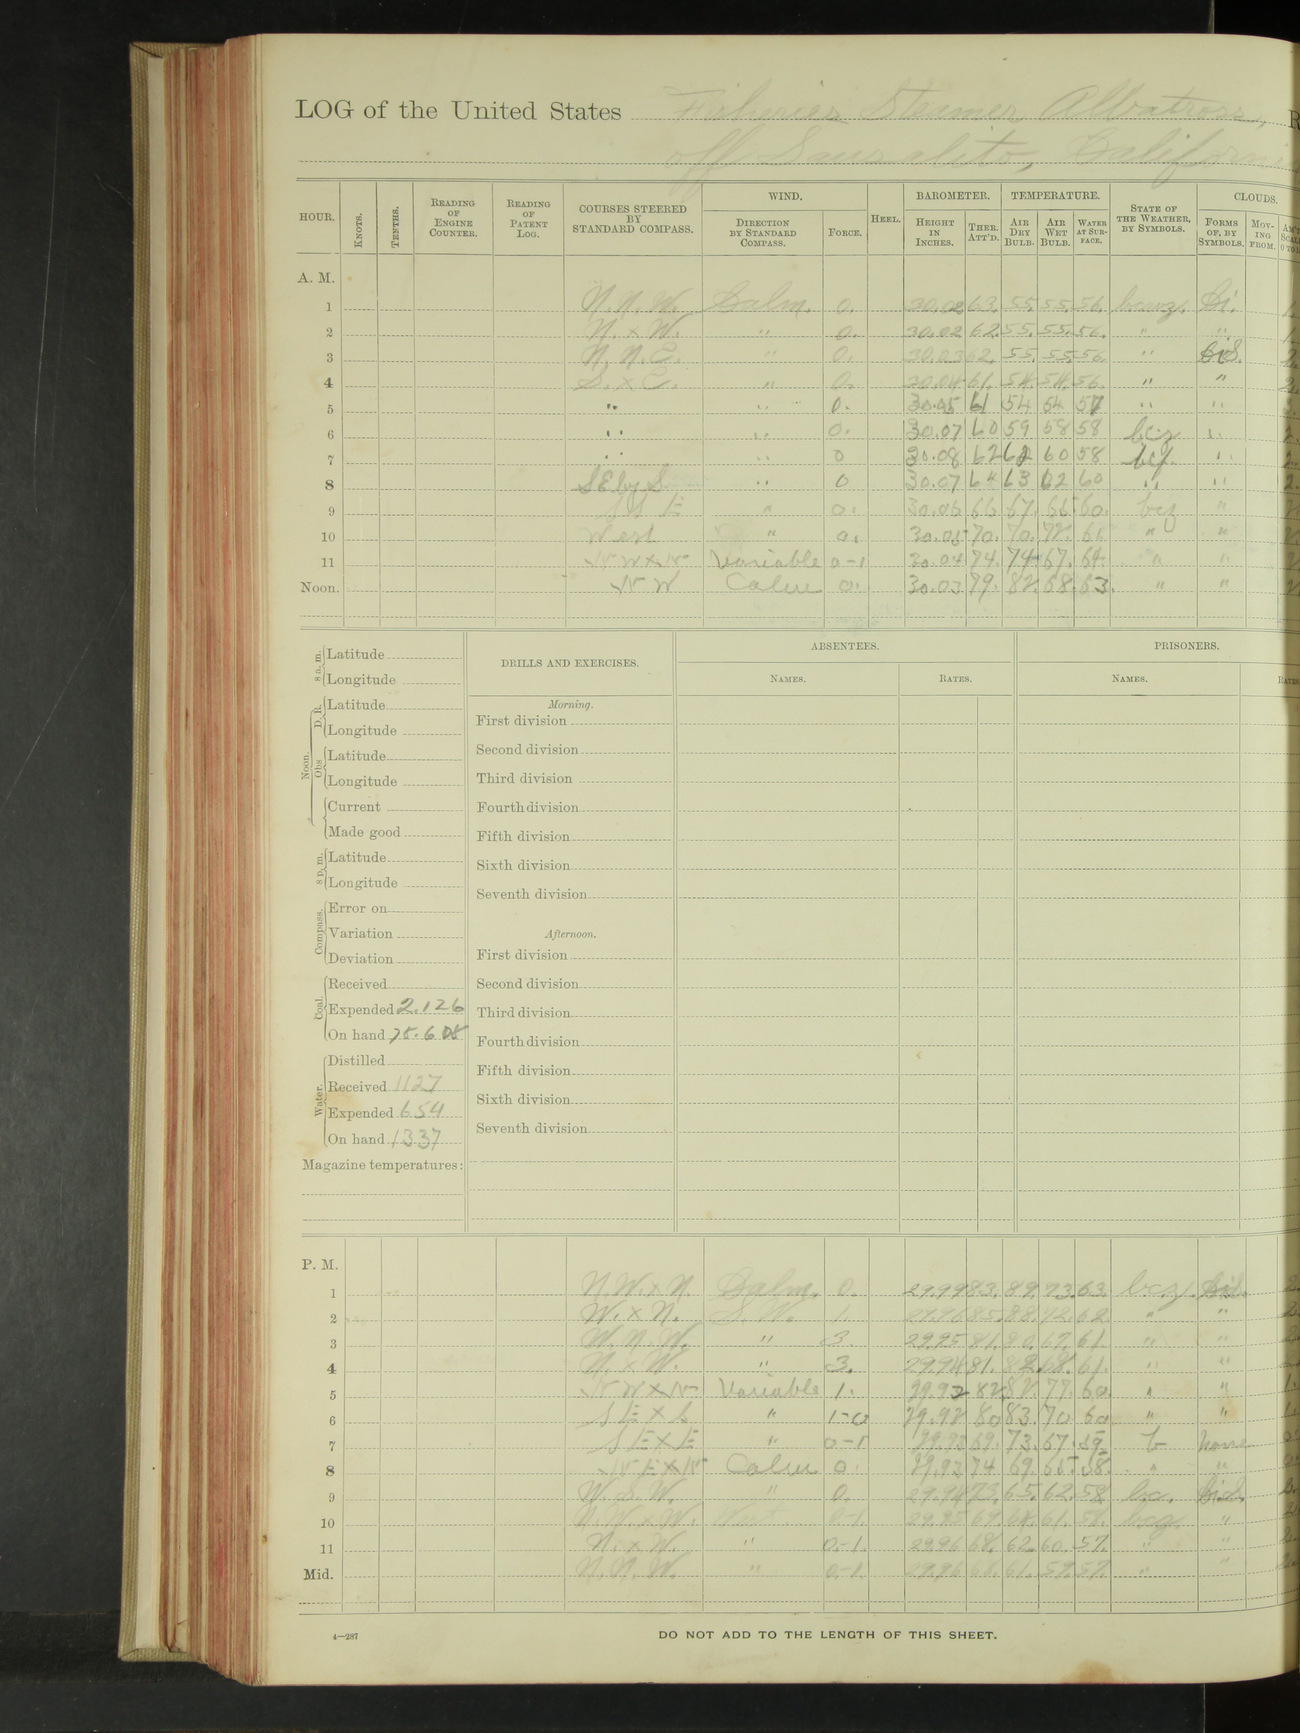 LOG of the United States Fisheries Steamer Albatross, R
off Sausalito, California
HOUR. KNOTS. TENTHS. READING OF ENGINE COUNTER. READING OF PATENT LOG. COURSES STEERED BY STANDARD COMPASS. WIND. DIRECTION BY STANDARD COMPASS. FORCE. HEEL. BAROMETER. HEIGHT IN INCHES. THER. ATT'D. TEMPERATURE. AIR DRY BULB. AIR WET BULB. WATER AT SURFACE. STATE OF THE WEATHER, BY SYMBOLS. CLOUDS. FORMS OF, BY SYMBOLS. MOVING FROM.
A. M.
1 N.N.W. Calm. 0. 30.02 63. 55. 55. 56. Ci.
2 N. x W. " 0. 30.02 62. 55. 55. 56. " "
3 N. N. E. " 0. 30.03 62. 55. 55. 56 " CiS. 2.
4 S. x E. " 0. 30.04 61. 54. 54. 56. " " 2.
5 " " 0. 30.05 61 54 54 57 " "
6 " " 0. 30.07 60 59 58 58 bcz " 2.
7 " " 0 30.08 62 62 60 58 bcz. " 2.
8 SE by S " 0 30.07 64 63 62 60 " " 2.
9 S S E " 0. 30.06 66 67. 66 60. bcz "
10 West " 0. 30.05 70. 70. " "
11 N W x N Variable 0-1 30.04 74. 74 67. 64. " "
Noon. N W Calm 0. 30.03 79. 82. 68. 63. " "
8 a.m. Latitude
Longitude
Noon. D. R. Latitude
Longitude
Obs Latitude
Longitude
Current
Made good
8 p.m. Latitude
Longitude
Compass. Error on
Variation
Deviation
Coal. Received
Expended 2.126
On hand 75.608
Water. Distilled
Received 1127
Expended 654
On hand 1337
Magazine temperatures:
DRILLS AND EXERCISES.
Morning.
First division
Second division
Third division
Fourth division
Fifth division
Sixth division
Seventh division
Afternoon.
First division
Second division
Third division
Fourth division
Fifth division
Sixth division
Seventh division
ABSENTEES.
NAMES. RATES.
PRISONERS.
NAMES. RATES
P. M.
1 N.W. x N. Calm. 0. 29.99 83. 89. 73. 63. bcz. CiS. 2.
2 W. x N. S. W. 1. 29.96 85. 88. 72. 62. " " 2.
3 W. N. W. " 3. 29.95 81. 80. 67. 61. " "
4 N. x W. " 3. 29.94 81. 82. 68. 61. " "
5 N W x N Variable 1. 29.92 82 82. 77. 60. " " 1.
6 S E x S. " 1-0 29.92 80 83. 70 60 " "
7 S E x E " 0-1 29.93 69. 73. 67. 59 b None
8 N E x N Calm 0. 29.93 74 69. 65. 58. " "
9 W. S. W. " 0. 29.94 73. 65. 62. 58 bc. CiS.
10 N. W. x W. West 0-1 29.95 69. 64. 61. 58. bcz. "
11 N. x W. " 0-1. 29.96 68. 62. 60. 57. " " 2.
Mid. N. N. W. " 0-1. 29.96 66. 61. 59. 57. " "
4—287
DO NOT ADD TO THE LENGTH OF THIS SHEET.